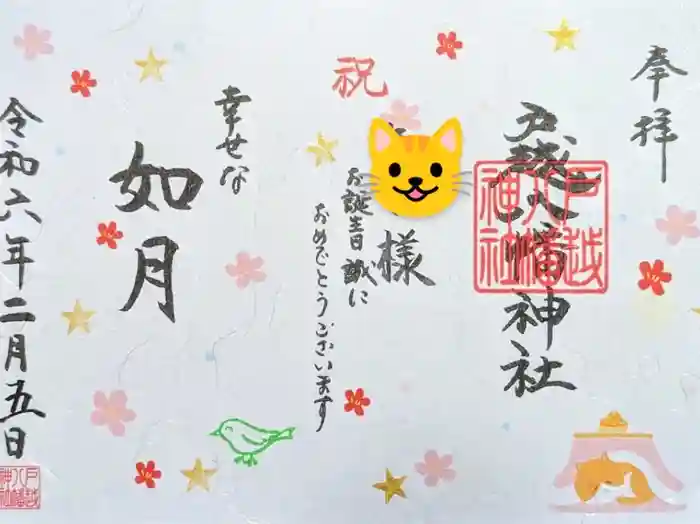 奉拝
戸越八幡神社
戸越
八幡
神社
祝
様
お誕生日誠に
おめでとうございます
幸せな
如月
令和六年二月五日
戸越
八幡
神社